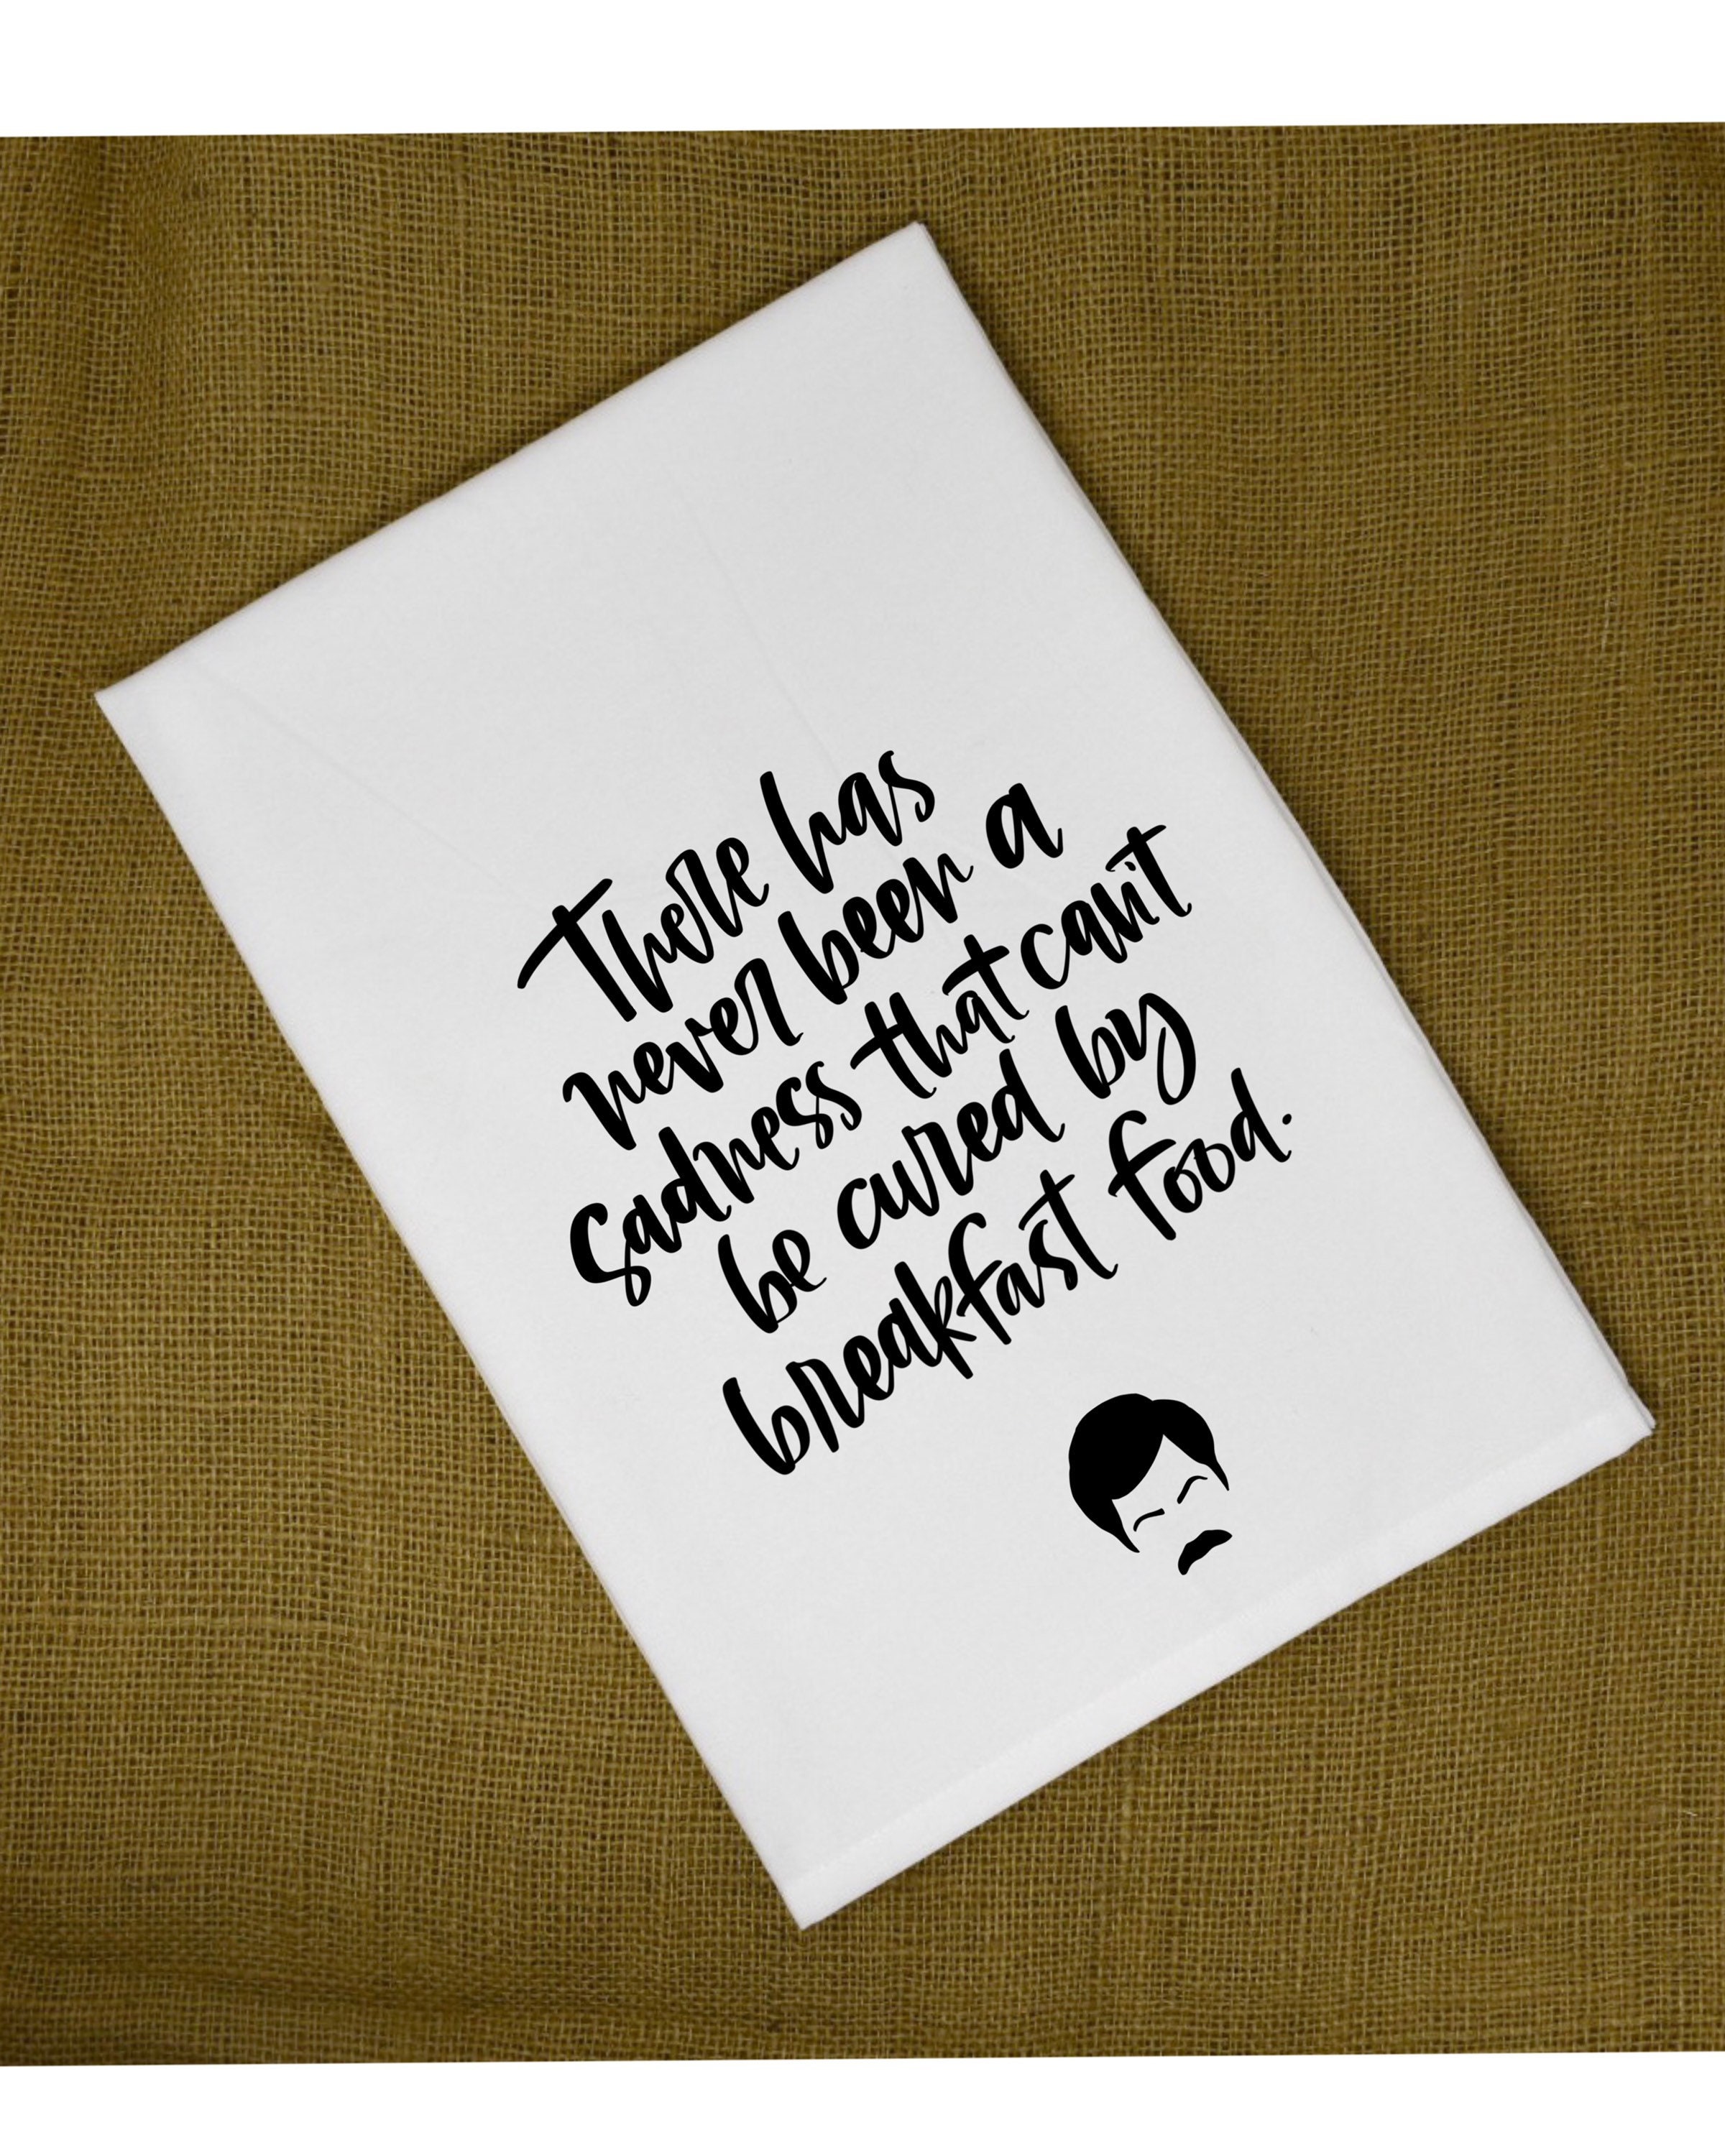 There has
never been a
sadness that can't
be cured by
breakfast food.